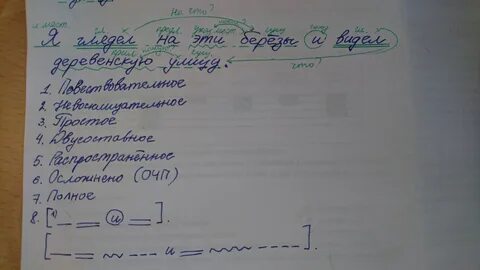 на что?
л.мест. гл. предл. указ.мест. какие? сущ. союз гл.
Я глядел на эти берёзы и видел
прил. какую? сущ. что?
деревенскую улицу.
1. Повествовательное
2. Невосклицательное
3. Простое
4. Двусоставное
5. Распространённое
6. Осложнено (ОЧП)
7. Полное
8. [ и ].
[ и ].